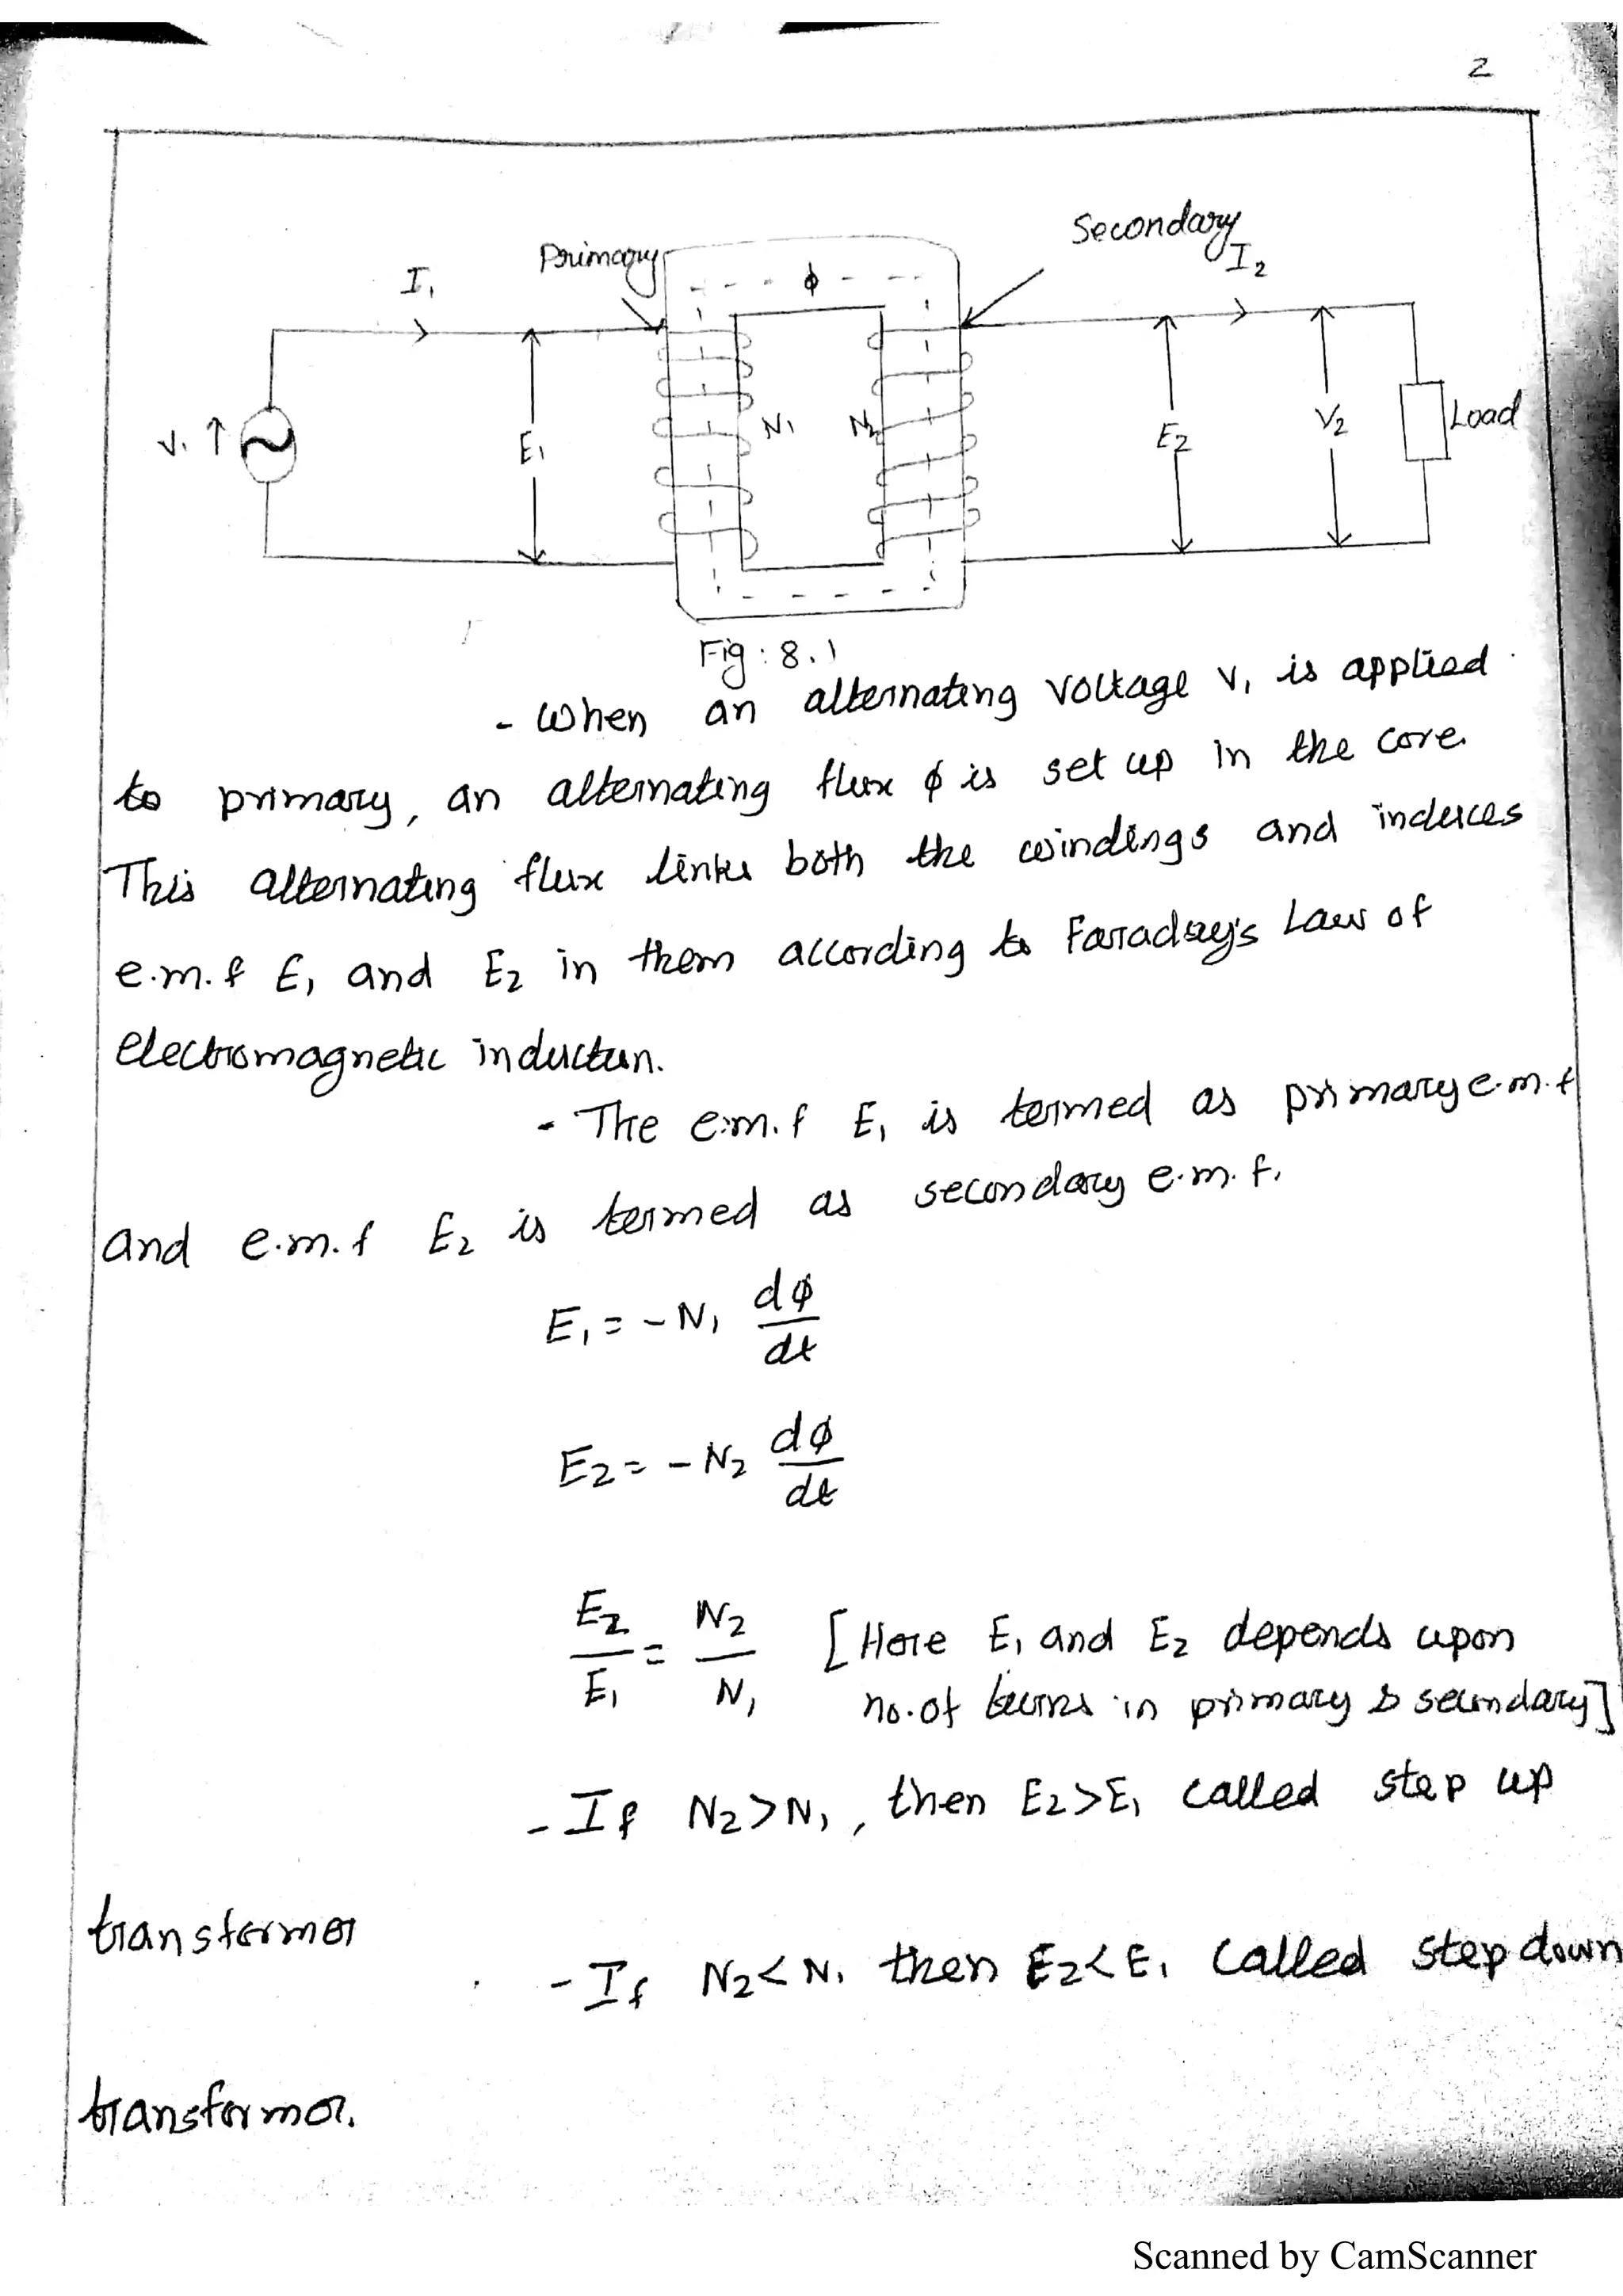 2
Primary
Secondary
I₁
ϕ
I₂
V₁ ↑
E₁
N₁
N₂
E₂
V₂
Load
Fig : 8.1
- When an alternating voltage V₁ is applied
to primary, an alternating flux ϕ is set up in the core.
This alternating flux links both the windings and induces
e.m.f E₁ and E₂ in them according to Faraday's Law of
electromagnetic induction.
- The e.m.f E₁ is termed as primary e.m.f
and e.m.f E₂ is termed as secondary e.m.f.
E₁ = - N₁ dϕ/dt
E₂ = - N₂ dϕ/dt
E₂/E₁ = N₂/N₁ [Here E₁ and E₂ depends upon
no.of turns in primary & secondary]
- If N₂>N₁, then E₂>E₁ called step up
transformer
- If N₂<N₁ then E₂<E₁ called step down
transformer.
Scanned by CamScanner